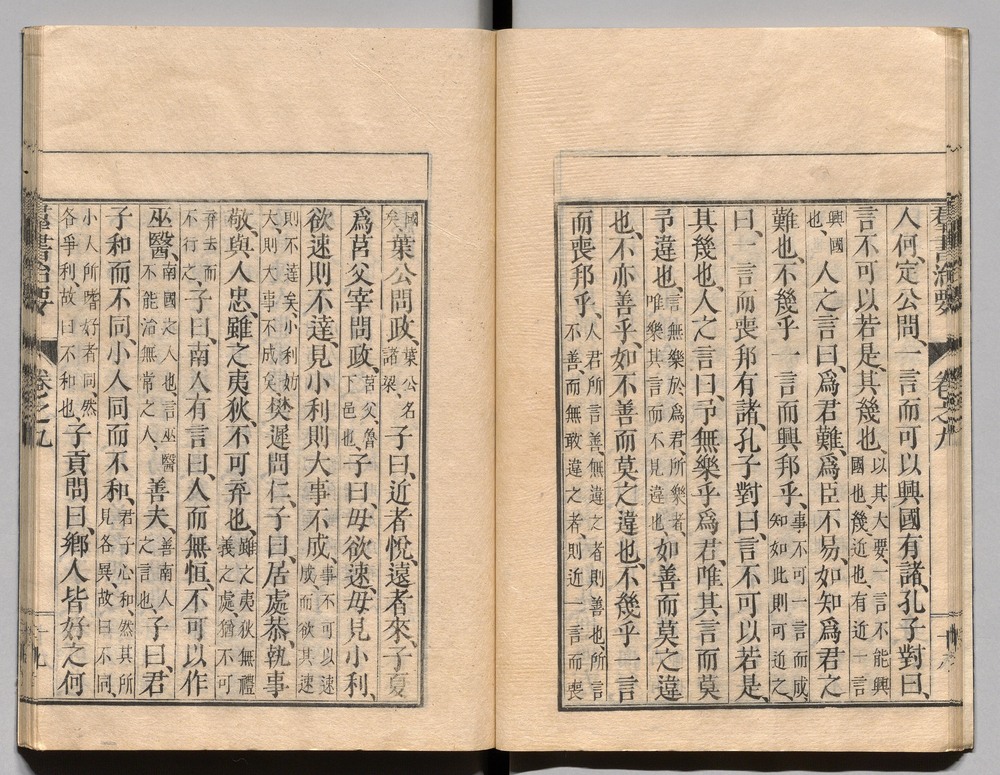 群書治要 卷之九
人何、定公問、一言而可以興國有諸、孔子對曰、
言不可以若是、其幾也、以其大要、一言不能興國也、幾近也、有近一言
興國也、人之言曰、爲君難、爲臣不易、如知爲君之
難也、不幾乎一言而興邦乎、事不可一言而成、知如此則可近之、
曰、一言而喪邦有諸、孔子對曰、言不可以若是、
其幾也、人之言曰、予無樂乎爲君、唯其言而莫
予違也、言無樂於爲君、所樂者、唯樂其言而不見違也、如善而莫之違
也、不亦善乎、如不善而莫之違也、不幾乎一言
而喪邦乎、人君所言善、無違之者則善也、所言不善、而無敢違之者、則近一言而喪
國矣、葉公問政、葉公名諸梁、子曰、近者悅、遠者來、子夏
爲莒父宰問政、莒父、魯下邑也、子曰、毋欲速、毋見小利、
欲速則不達、見小利則大事不成、事不可以速成、而欲其速
則不達矣、小利妨大、則大事不成矣、樊遲問仁、子曰、居處恭、執事
敬、與人忠、雖之夷狄、不可弃也、雖之夷狄無禮義之處、猶不可
弃去而不行之、子曰、南人有言曰、人而無恒、不可以作
巫醫、南國之人也、言巫醫不能治無常之人、善夫、善南人之言也、子曰、君
子和而不同、小人同而不和、君子心和、然其所見各異、故曰不同、
小人所嗜好者同、然各爭利、故曰不和也、子貢問曰、鄉人皆好之何
群書治要 卷之九 十九